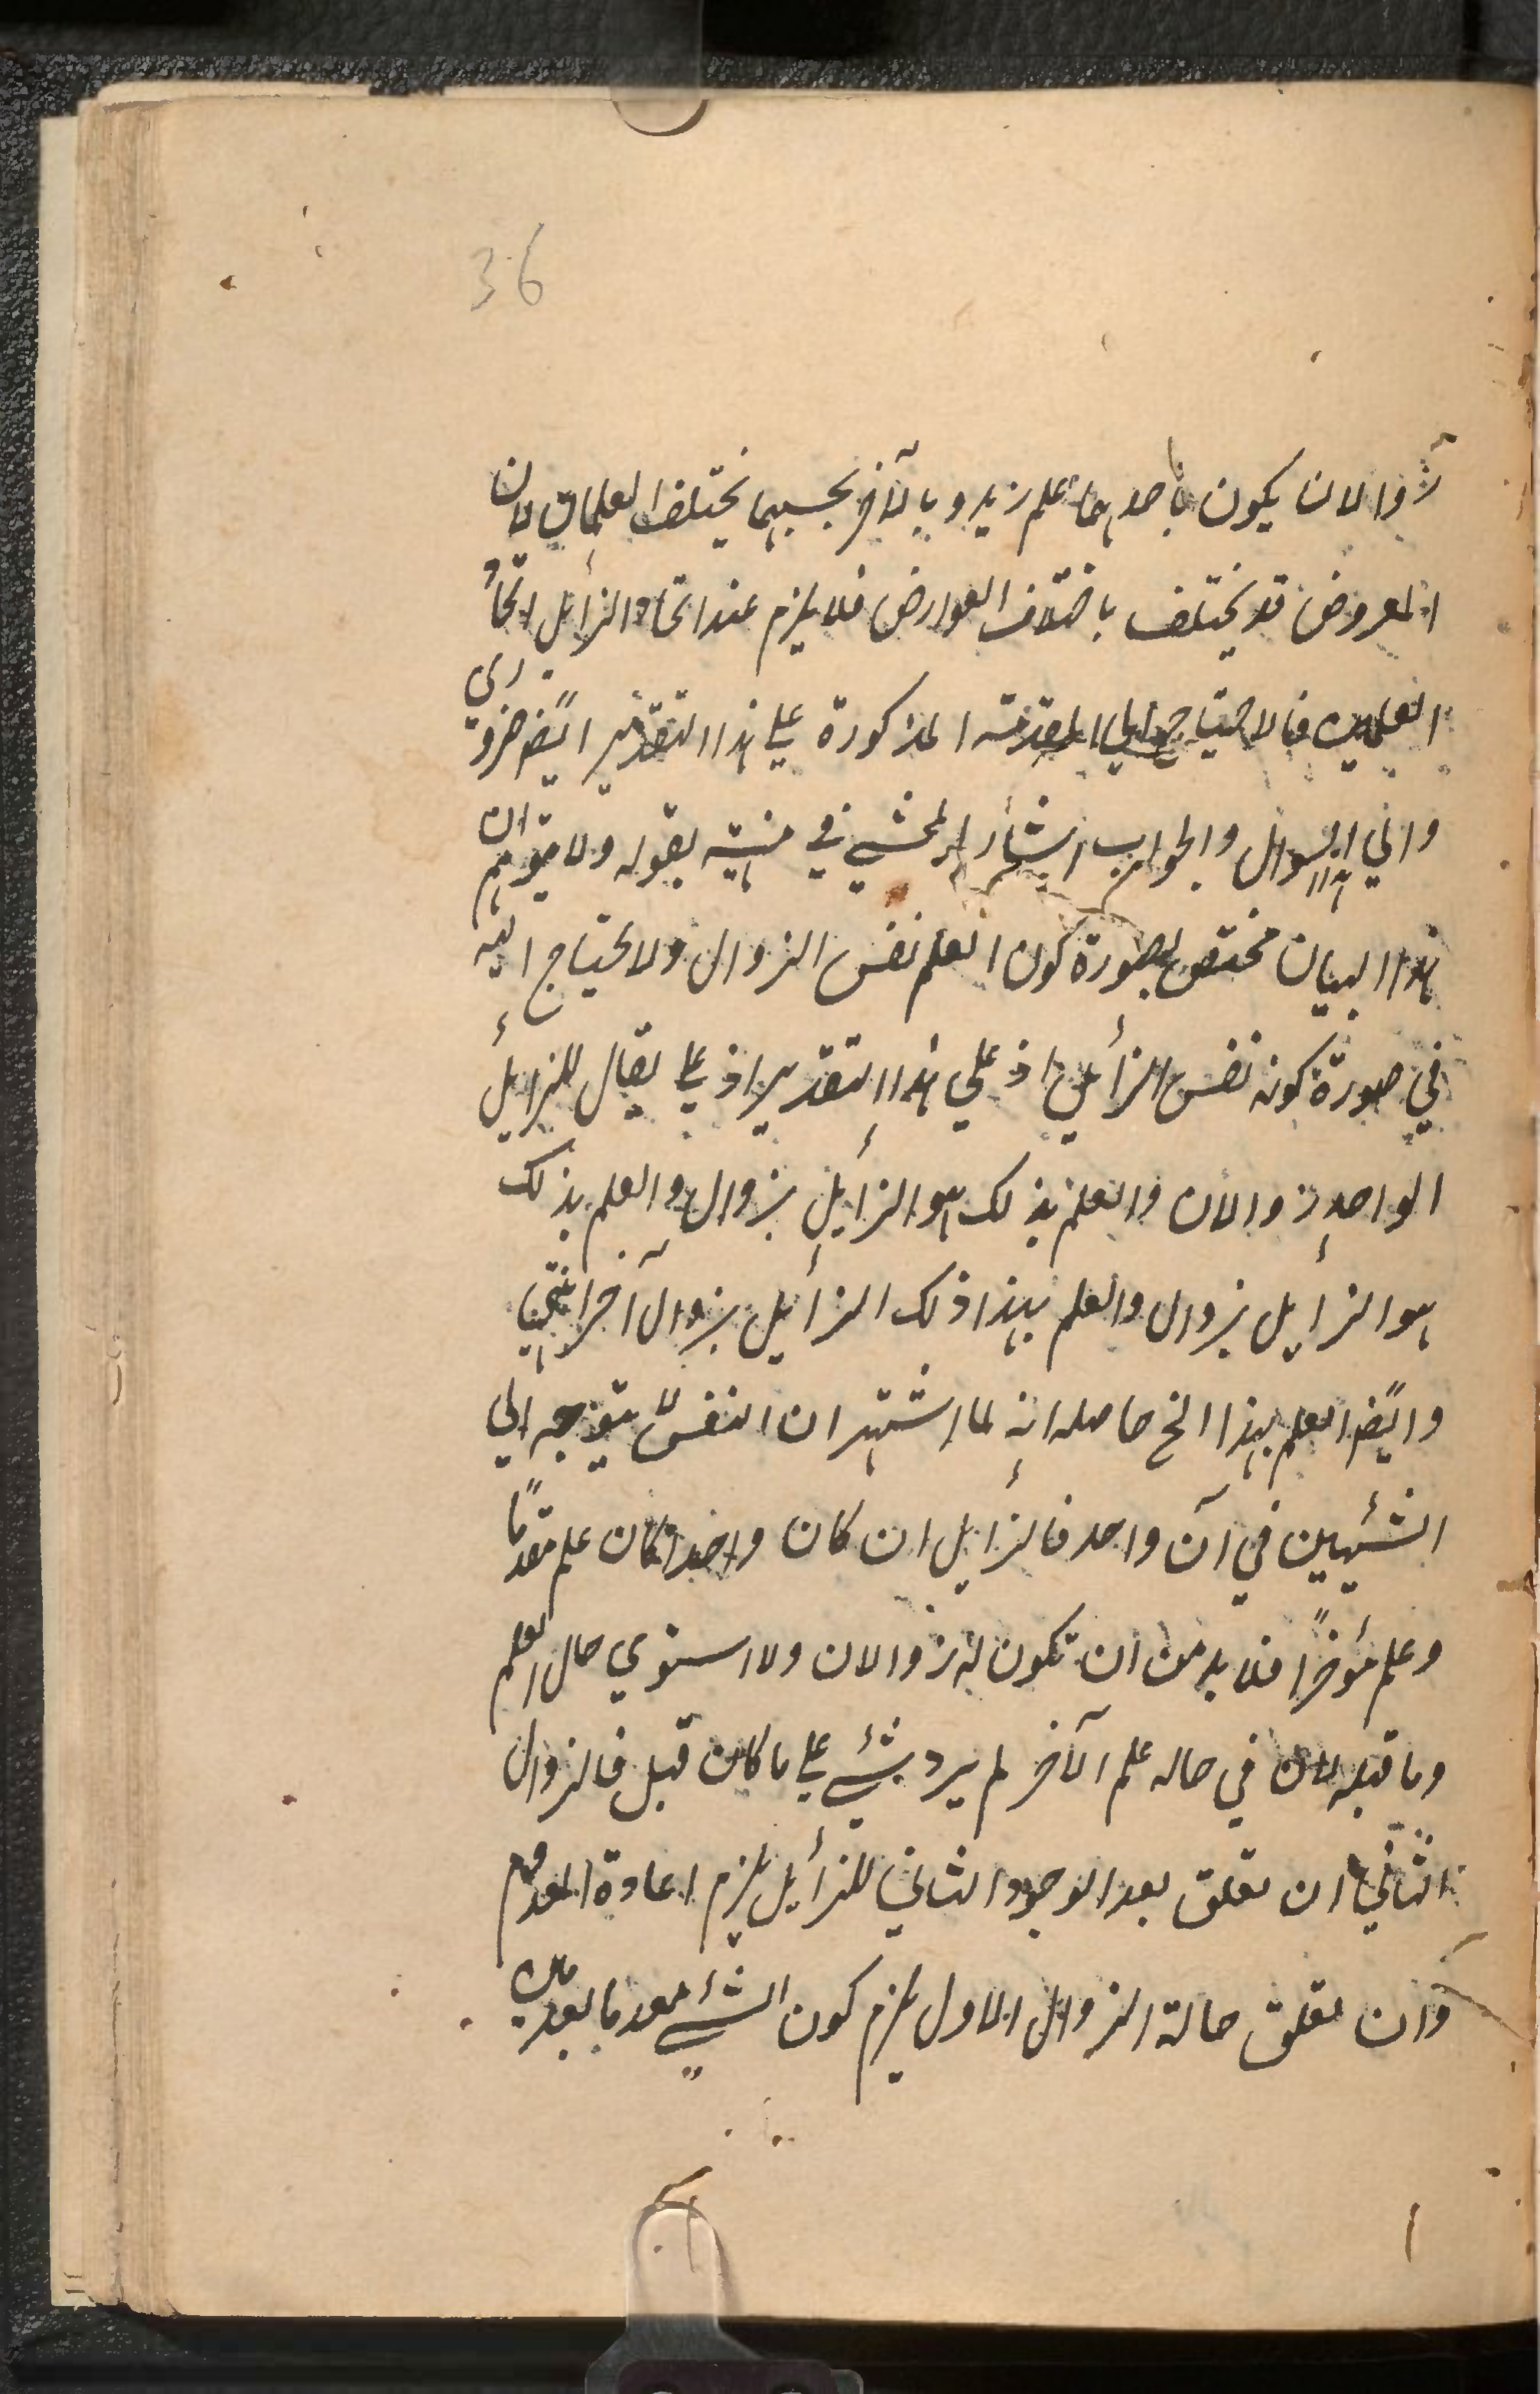 36
زوالان يكون باحدهما علم زيد وبالآخر بحسبهما يختلف العلمان لان
المعروض قد يختلف باختلاف العوارض فلا يلزم عند اتحاد الزائل اتحاد
العلمين فالاحتياج الى المقدمة المذكورة على هذا التقدير ايضً ضروري
والى هذا السوال والجواب اشار المحشي في منهيته بقوله ولا يتوهم ان
هذا البيان مختص بصورة كون العلم نفس الزوال ولا يحتاج اليه
في صورة كونه نفس الزائل اذ على هذا التقدير اذ على يقال للزايل
الواحد زوالان والعلم بذلك هو الزايل بزوال والعلم بذلك
هو الزايل بزوال والعلم بهذا ذلك الزايل بزوال آخر انتهى
وايضً العلم بهذا الخ حاصله انه لما اشتهر ان النفس لا يتوجه الى
الشيئين في آن واحد فالزايل ان كان واحدا كان علم مقدمًا
وعلم مؤخرًا فلا بد من ان تكون له زوالان والا استوي حال العلم
وما قبله لان في حاله علم الآخر لم يرد شيء على ما كان قبل فالزوال
الثاني ان تعلق بعد الوجود الثاني للزايل يلزم اعادة المعدوم
وان تعلق حالة الزوال الاول يلزم كون الشيء معدوما بعدمين